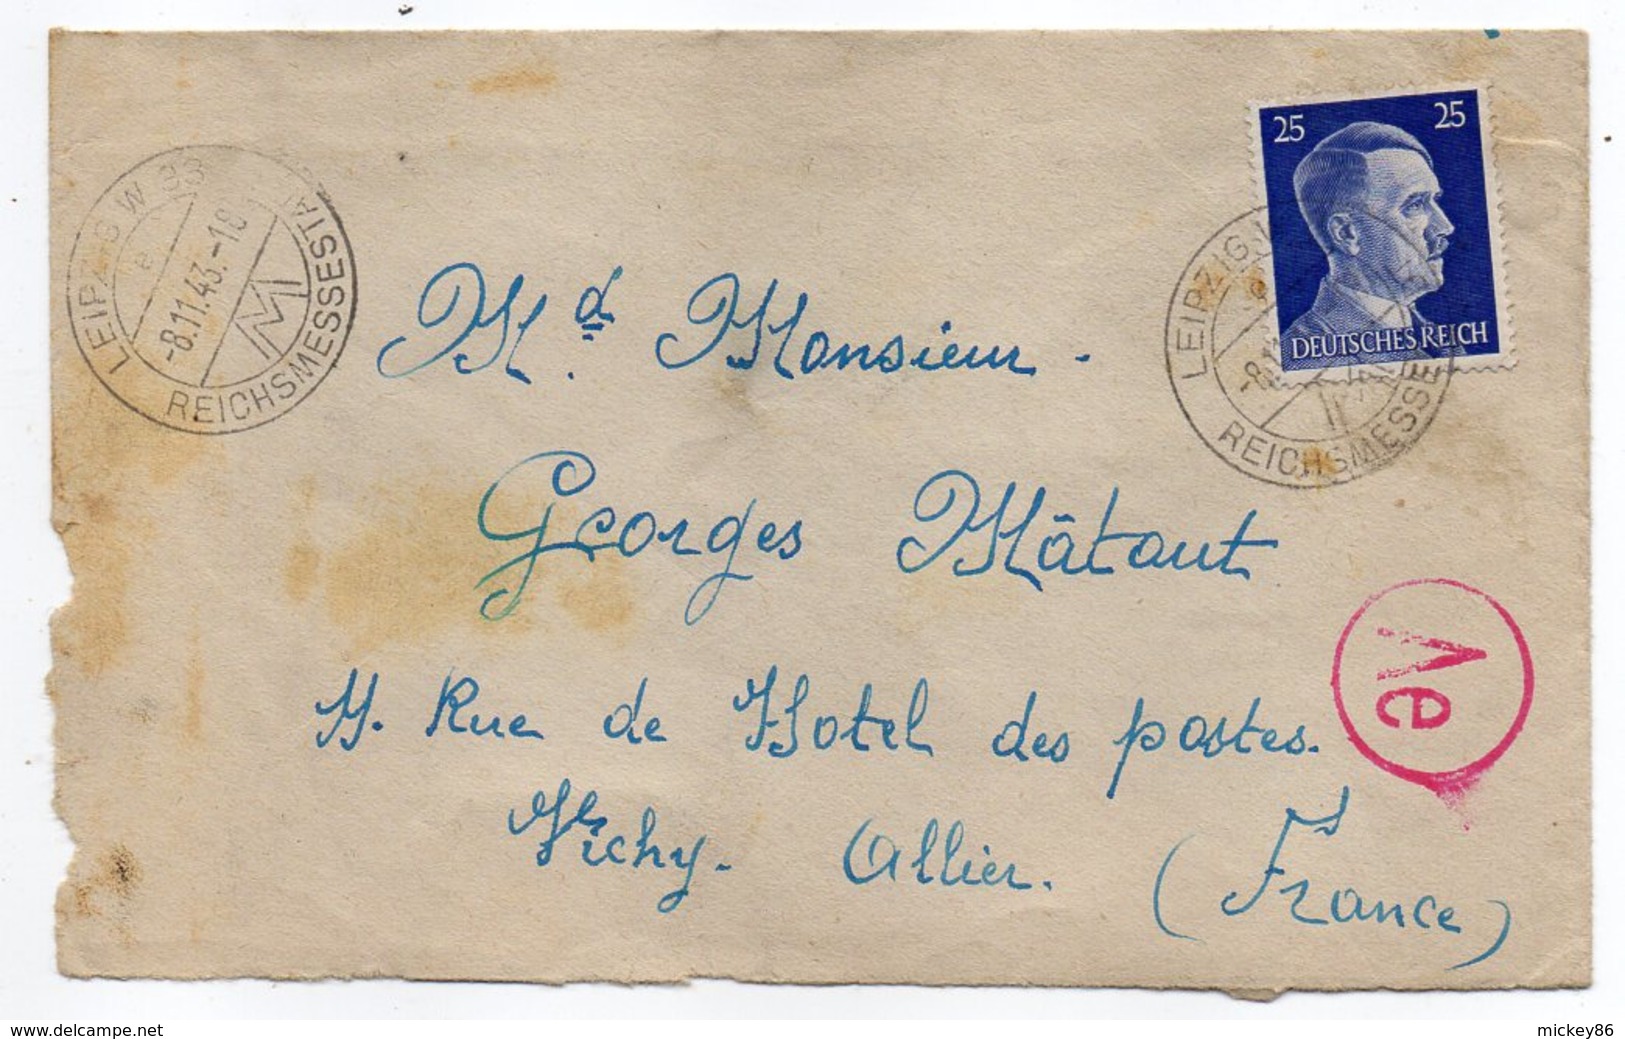 LEIPZIG W 33
e
-8.11.43.-18
REICHSMESSESTA
25 25
DEUTSCHES REICH
LEIPZIG
REICHSMESSE
Md Monsieur.
Georges Mâtaut
Rue de Hotel des postes.
Vichy. Allier. (France)
Ae
www.delcampe.net
mickey86